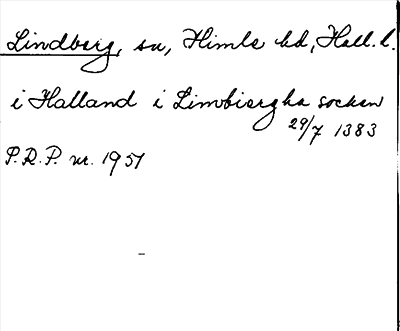 Lindberg, sn, Himle hd, Hall. l.
i Halland i Limbiergha socken
29/7 1383
P.R.P. nr. 1951